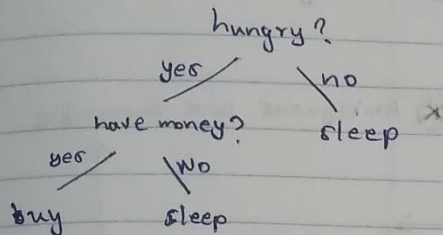 hungry?
yes no
have money? sleep
yes No
buy sleep